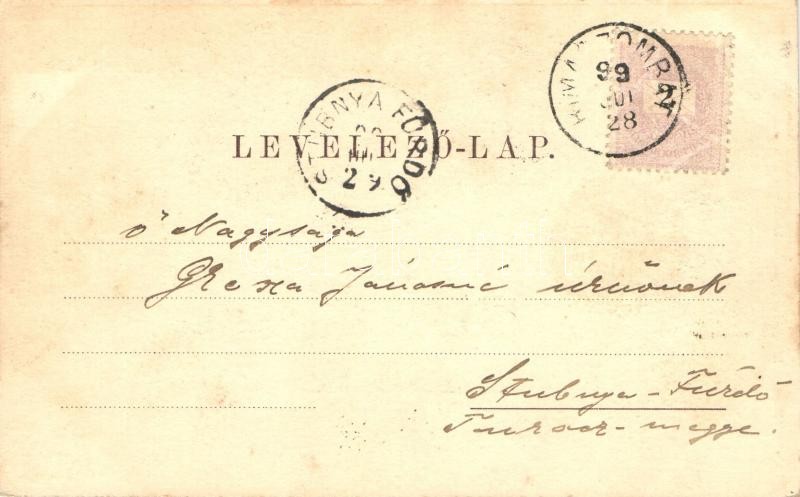 RIMASZOMBAT
99
JUL
28
2
STUBNYA FÜRDŐ
29
LEVELEZŐ-LAP.
Ő Nagysága
Grexa Jánosné úrnőnek
Stubnya-Fürdő
Turócz-megye.